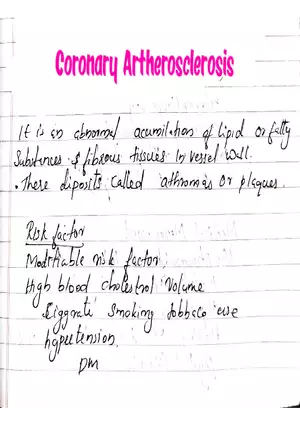 Coronary Artherosclerosis
It is an abnormal acumilation of lipid or fatty
Substances & fibrous tissues in vessel wall.
• There diposits called athromas or plaques.
Risk factor
Modifiable risk factor
High blood cholestrol Volume
Ciggrate Smoking tobbaco use
hypertension.
DM